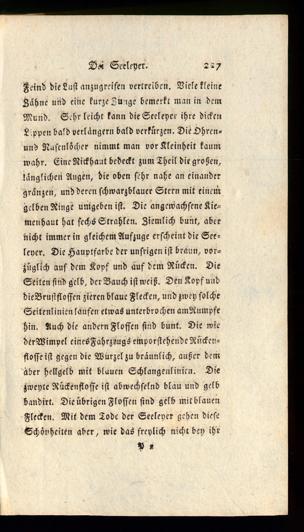 Der Seeleyer. 227
Feind die Lust anzugreifen vertreiben. Viele kleine
Zähne und eine kurze Zunge bemerkt man in dem
Mund. Sehr leicht kann die Seeleyer ihre dicken
Lippen bald verlängern bald verkürzen. Die Ohren-
und Nasenlöcher nimmt man vor Kleinheit kaum
wahr. Eine Nickhaut bedeckt zum Theil die großen,
länglichen Augen, die oben sehr nahe an einander
gränzen, und deren schwarzblauer Stern mit einem
gelben Ringe umgeben ist. Die angewachsene Kie-
menhaut hat sechs Strahlen. Ziemlich bunt, aber
nicht immer in gleichem Aufzuge erscheint die See-
leyer. Die Hauptfarbe der unsrigen ist braun, vor-
züglich auf dem Kopf und auf dem Rücken. Die
Seiten sind gelb, der Bauch ist weiß. Den Kopf und
die Brustflossen zieren blaue Flecken, und zwey solche
Seitenlinien laufen etwas unterbrochen am Rumpfe
hin. Auch die andern Flossen sind bunt. Die wie
der Wimpel eines Fahrzeugs emporstehende Rücken-
flosse ist gegen die Wurzel zu bräunlich, außer dem
aber hellgelb mit blauen Schlangenlinien. Die
zweyte Rückenflosse ist abwechselnd blau und gelb
bandirt. Die übrigen Flossen sind gelb mit blauen
Flecken. Mit dem Tode der Seeleyer gehen diese
Schönheiten aber, wie das freylich nicht bey ihr
P 2